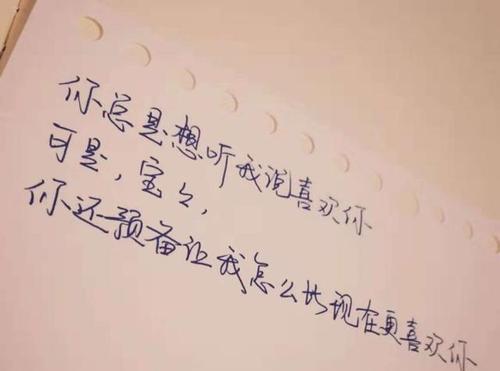 你总是想听我说喜欢你
可是，宝々，
你还预备让我怎么比现在更喜欢你